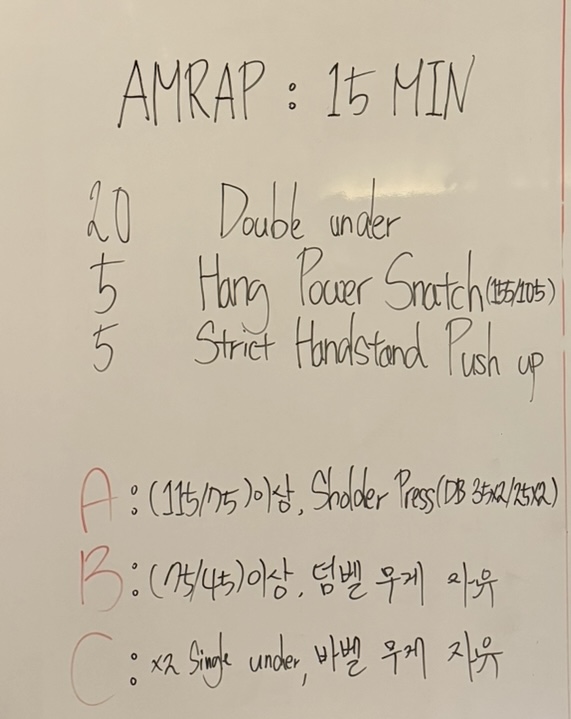 AMRAP : 15 MIN
20 Double under
5 Hang Power Snatch (155/105)
5 Strict Handstand Push up
A : (115/75)이상, Sholder Press (DB 35x2/25x2)
B : (75/45)이상, 덤벨 무게 자유
C : x2 Single under, 바벨 무게 자유